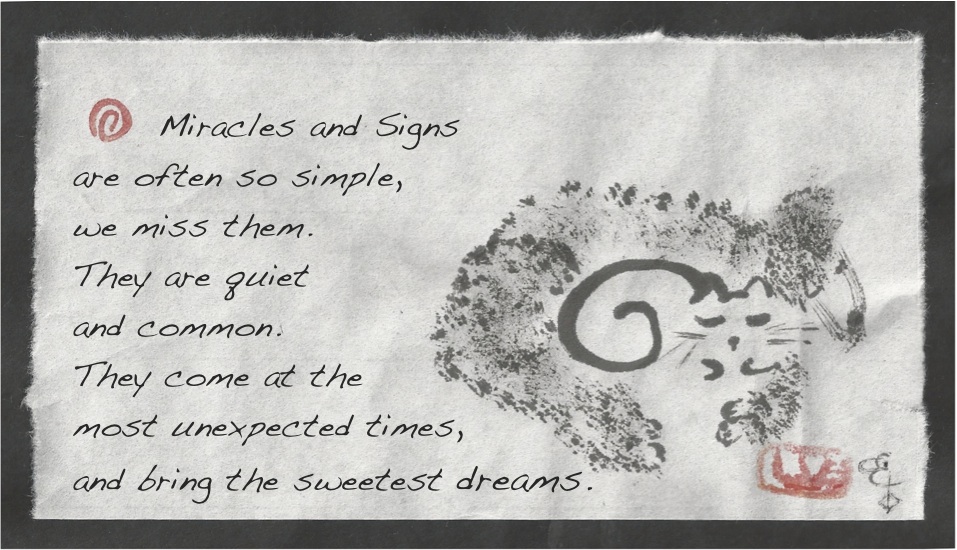 Miracles and Signs
are often so simple,
we miss them.
They are quiet
and common.
They come at the
most unexpected times,
and bring the sweetest dreams.